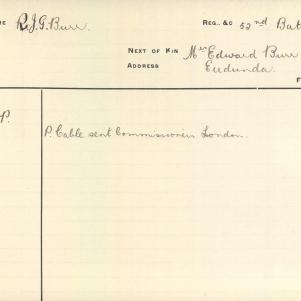 R.J.G. Burr. REG., &C 52nd Bat
NEXT OF KIN Mr Edward Burr
ADDRESS Eudunda.
P.
P. Cable sent Commissioners London.